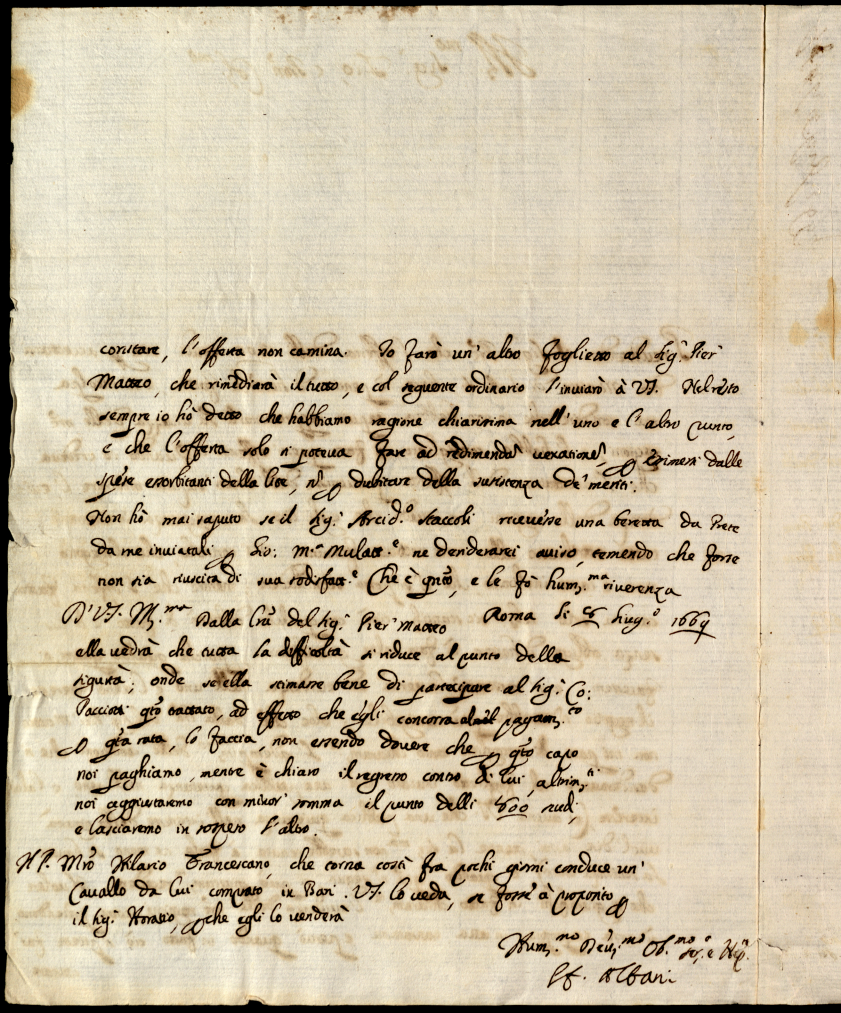 constare, l'offerta non camina. Io farò un' altro foglietto al Sig.r Pier
Matteo, che rimediarà il tutto, e col seguente ordinario l'inviarò à VS. Nel resto
sempre io hò detto che habbiamo ragione chiarissima nell'uno e l'altro punto,
e che l'offerta solo si poteva fare ad redimendã vexationẽ, esimersi dalle
spese esorbitanti della lite, nõ dubitare della sussistenza de' meriti.
Non hò mai saputo se il Sig.r Arcid.o Staccoli ricevesse una beretta da Prete
da me inviatali Gio: M.a Mulatt.e ne desiderarei aviso, temendo che forse
non sia riuscita di sua sodisfatt.e Che è q̃to, e le fò hum.ma riverenza
D. VS. M.ma Dalla l'rã del Sig.r Pier Matteo Roma li 8 Giug.o 1669
ella vedrà che tutta la difficoltà si riduce al punto della
sigurtà; onde se ella stimasse bene di partecipare al Sig.r Co:
Pacciotti q̃to trattato, ad effetto che egli concorra al pagam.to
q̃ta rata, lo faccia, non essendo dovere che q̃to capo
noi paghiamo, mentre è chiaro il regresso contro di lui, altrim.ti
noi aggiustaremo con minor somma il punto delli 800 scudi,
e lasciaremo in sospeso l'altro.
Mrõ Hilario Francescano, che torna costì fra pochi giorni conduce un'
Cavallo da lui comprato in Bari. VS. lo veda, se forse à proposito
il Sig.r Horatio, che egli lo venderà
Hum.mo Dev.mo Ob.mo
Albani